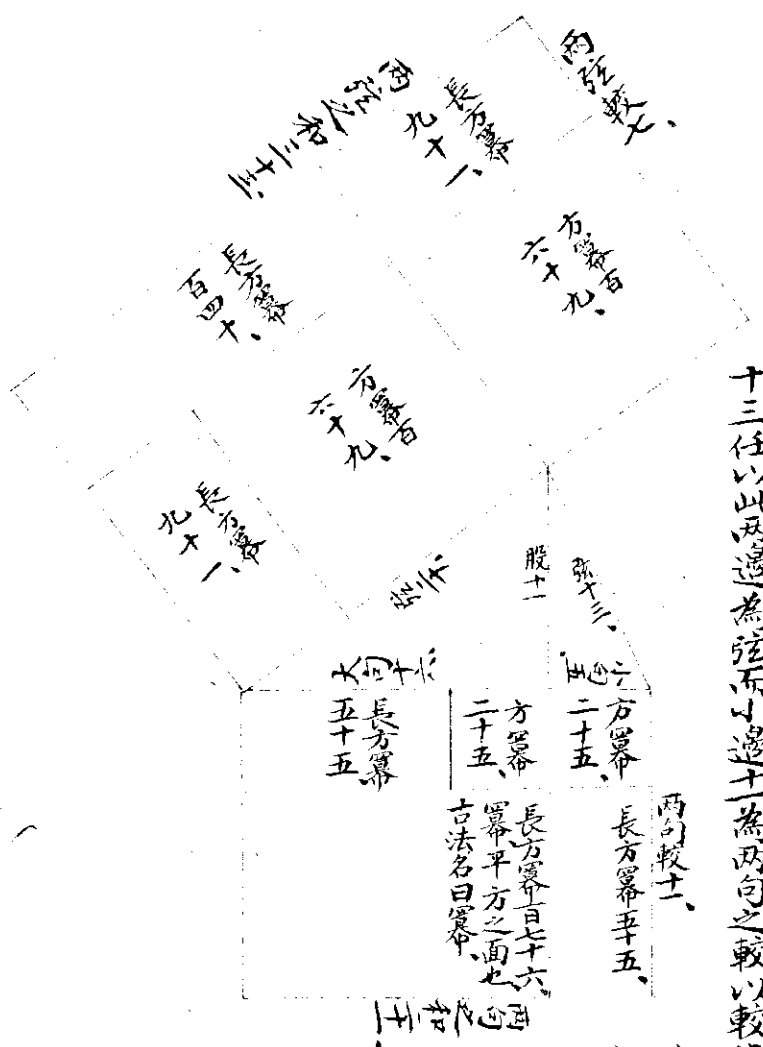 十三任以此两邊為弦而小邊十一為两句之較以較
两弦較七、
两弦之和三十三、
長方冪
九十一、
方冪百
六十九、
長方冪
百四十、
方冪百
六十九、
長方冪
九十一、
弦二十
股十一
弦十三、
小句五
大句十六、
方冪
二十五、
方冪
二十五、
長方冪
五十五、
两句較十一、
長方冪五十五、
長方冪百七十六、
冪平方之面也、
古法名曰冪、
两句之和二十一